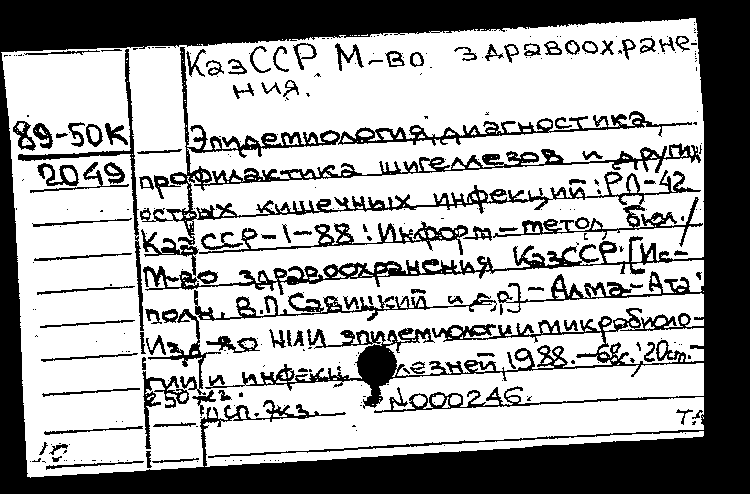 КазССР. М-во здравоохране-
ния.
89-50К
2049
Эпидемиология, диагностика,
профилактика шигеллезов и других
острых кишечных инфекций: РД-42
КазССР-1-88: Информ.-метод. бюл./
М-во здравоохранения КазССР; [Ис-
полн. В.П. Савицкий и др.] - Алма-Ата:
Изд-во НИИ эпидемиологии, микробиоло-
гии и инфекц. лезней, 1988. - 68с.; 20см. -
250 экз.
ДСП. Экз. N000246.
10